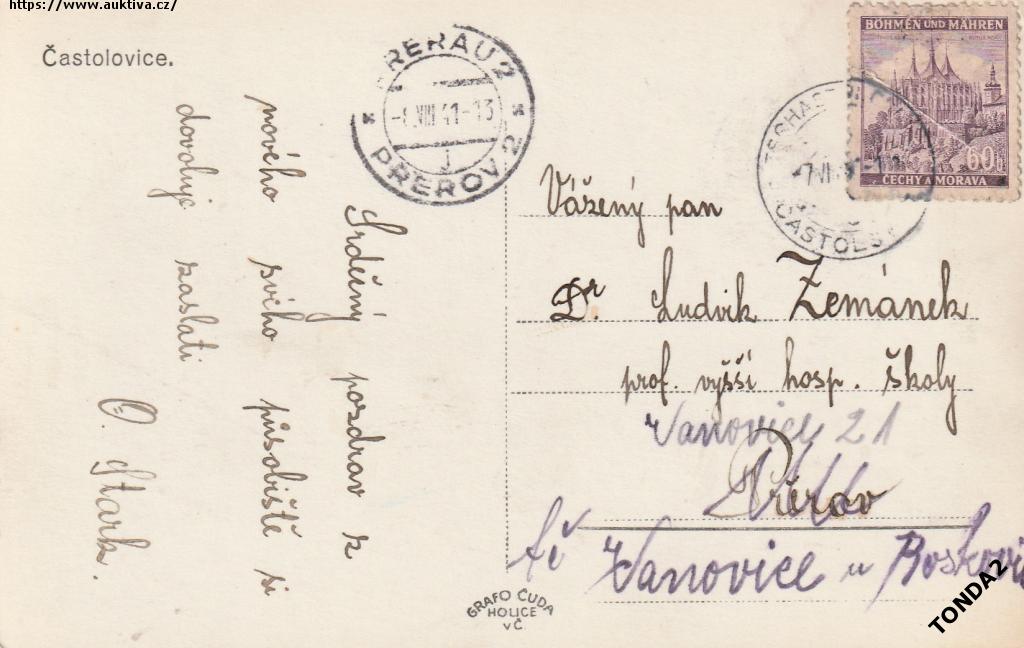 https://www.auktiva.cz/
Častolovice.
PRERAU 2
-4.VIII 41-13
PŘEROV 2
BÖHMEN UND MÄHREN
60h
ČECHY A MORAVA
Srdečný pozdrav z
nového svého působiště si
dovoluje zaslati
O. Stark.
Vážený pan
Dr Ludvik Zemánek
prof. vyšší hosp. školy
Vanovice 21
Přerov
tč Vanovice u
GRAFO ČUDA
HOLICE
v Č.
TONDA2